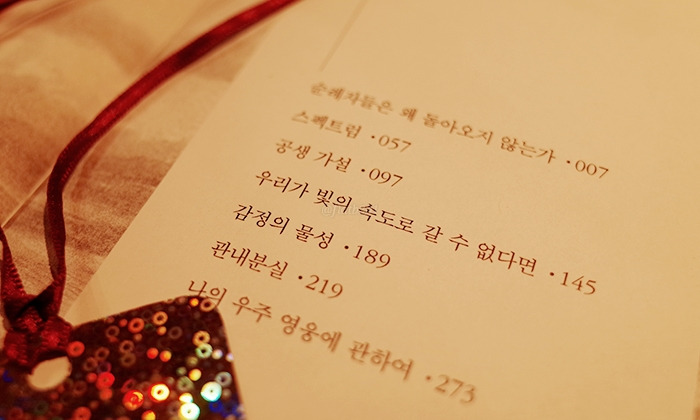 순례자들은 왜 돌아오지 않는가 · 007
스펙트럼 · 057
공생 가설 · 097
우리가 빛의 속도로 갈 수 없다면 · 145
감정의 물성 · 189
관내분실 · 219
나의 우주 영웅에 관하여 · 273